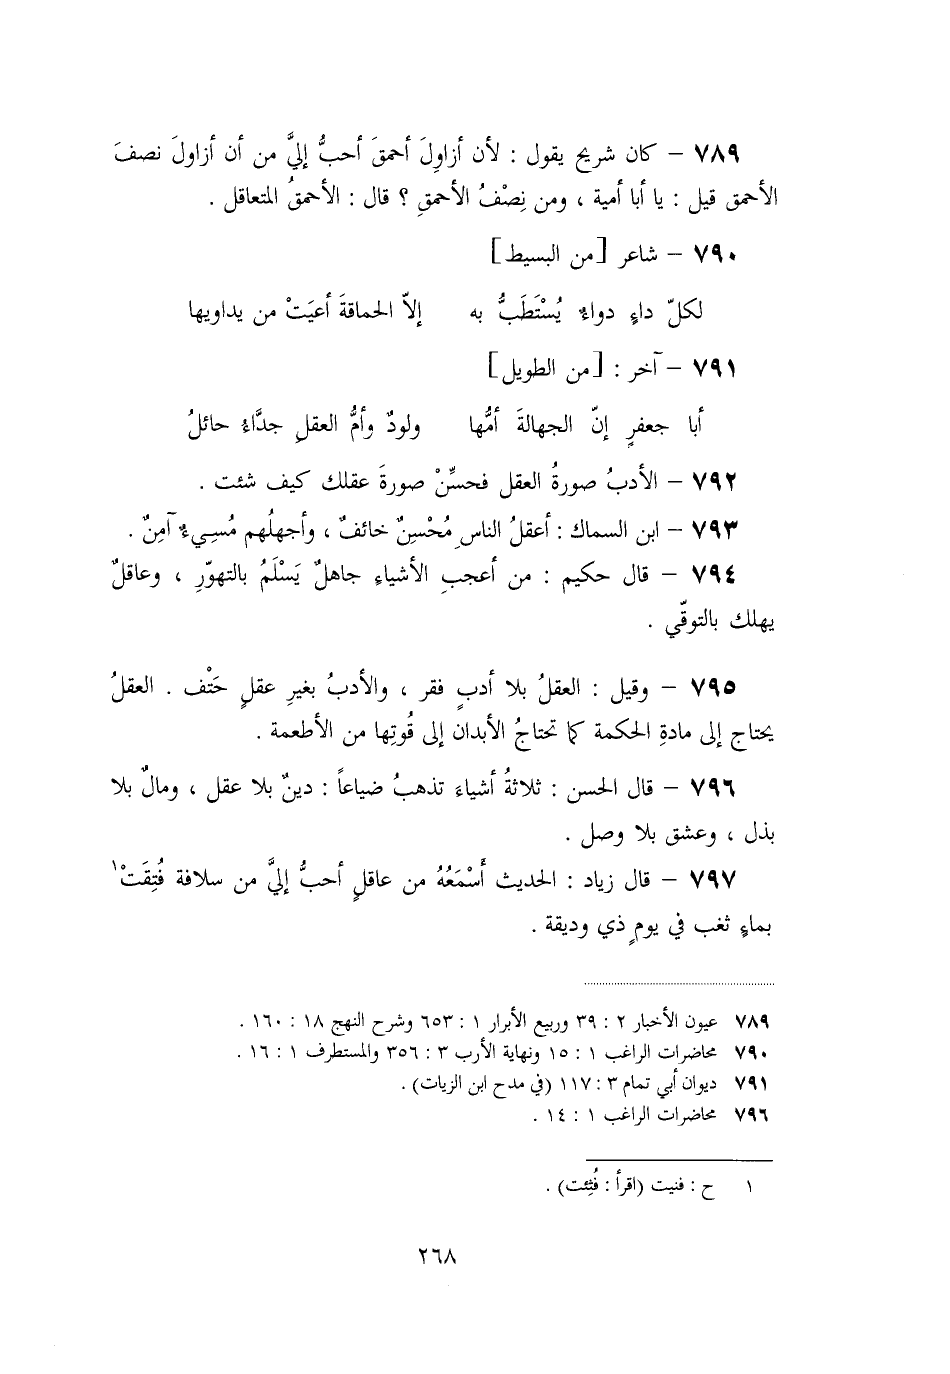 ٧٨٩ – كان شريح يقول : لأن أزاوِلَ أحمقَ أحبُّ إليَّ من أن أزاولَ نصفَ
الأحمق قيل : يا أبا أمية ، ومن نِصْفُ الأحمقِ ؟ قال : الأحمقُ المتعاقل .
٧٩٠ – شاعر [من البسيط]
لكلّ داءٍ دواءٌ يُسْتَطَبُّ به إلاّ الحماقةَ أعيَتْ من يداويها
٧٩١ – آخر : [من الطويل]
أبا جعفرٍ إنّ الجهالةَ أمُّها ولودٌ وأمُّ العقلِ جدَّاءُ حائلُ
٧٩٢ – الأدبُ صورةُ العقل فحسِّنْ صورةَ عقلك كيف شئت .
٧٩٣ – ابن السماك : أعقلُ الناسِ مُحْسِنٌ خائفٌ ، وأجهلُهم مُسِيءٌ آمِنٌ .
٧٩٤ – قال حكيم : من أعجبِ الأشياءِ جاهلٌ يَسْلَمُ بالتهوّرِ ، وعاقلٌ
يهلك بالتوقّي .
٧٩٥ – وقيل : العقلُ بلا أدبٍ فقر ، والأدبُ بغيرِ عقلٍ حَتْف . العقلُ
يحتاج إلى مادةِ الحكمة كما تحتاجُ الأبدان إلى قُوتِها من الأطعمة .
٧٩٦ – قال الحسن : ثلاثةُ أشياءَ تذهبُ ضياعاً : دينٌ بلا عقل ، ومالٌ بلا
بذل ، وعشق بلا وصل .
٧٩٧ – قال زياد : الحديث أَسْمَعُهُ من عاقلٍ أحبُّ إليَّ من سلافة فُتِقَتْ١
بماءٍ ثغب في يومٍ ذي وديقة .
٧٨٩ عيون الأخبار ٢ : ٣٩ وربيع الأبرار ١ : ٦٥٣ وشرح النهج ١٨ : ١٦٠ .
٧٩٠ محاضرات الراغب ١ : ١٥ ونهاية الأرب ٣ : ٣٥٦ والمستطرف ١ : ١٦ .
٧٩١ ديوان أبي تمام ٣ : ١١٧ (في مدح ابن الزيات) .
٧٩٦ محاضرات الراغب ١ : ١٤ .
١ ح : فنيت (اقرأ : فُثِئت) .
٢٦٨